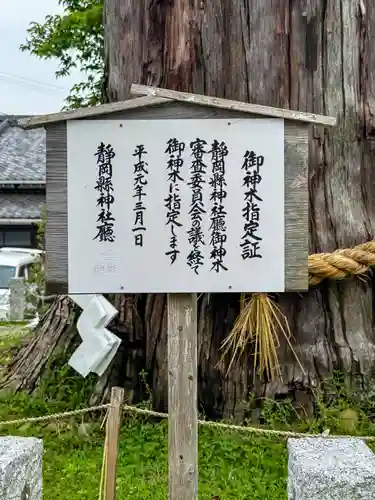 御神木指定証
静岡県神社廳御神木
審査委員会の議を経て
御神木に指定す
平成元年三月一日
静岡縣神社廳